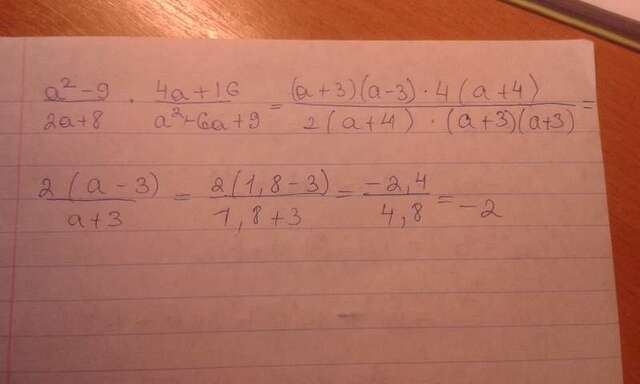 (a² - 9)/(2a + 8) · (4a + 16)/(a² + 6a + 9) = ((a + 3)(a - 3) · 4(a + 4))/(2(a + 4) · (a + 3)(a + 3)) =
(2(a - 3))/(a + 3) = (2(1,8 - 3))/(1,8 + 3) = (-2,4)/(4,8) = -2